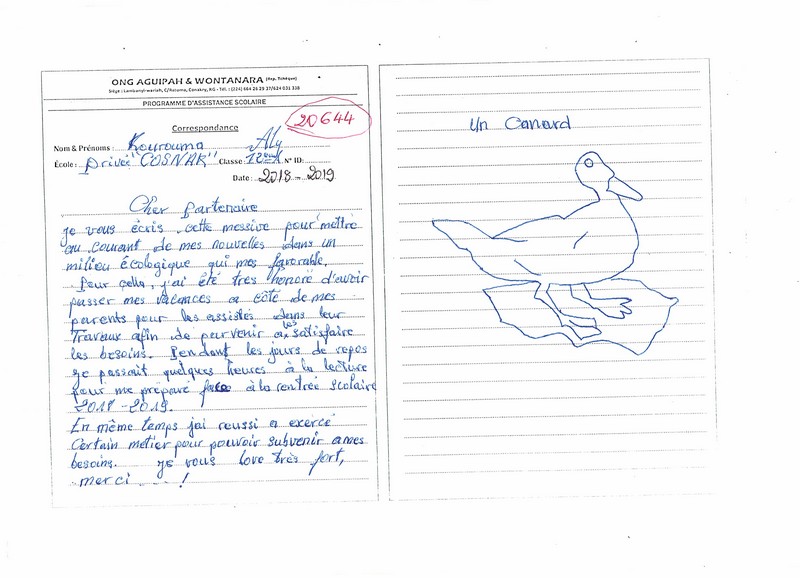 ONG AGUIPAH & WONTANARA (Rep. Tchèque)
Siège : Lambanyi-wariah, C/Ratoma, Conakry, RG - Tél. : (224) 664 26 29 27/624 031 338
PROGRAMME D'ASSISTANCE SCOLAIRE
20644
Correspondance
Nom & Prénoms : Kourouma Aly
École : privée "COSNAK" Classe : 12ème N° ID:
Date : 2018 - 2019
Cher partenaire
je vous écris cette messive pour mettre
au courant de mes nouvelles dans un
milieu écologique qui mes favorable,
Pour cella, j'ai été très honoré d'avoir
passer mes vacances a côté de mes
parents pour les assistés dans leur
Travaux afin de parvenir a les satisfaire
les besoins. Pendant les jours de repos
je passait quelques heures à la lecture
pour me préparé face à la rentrée scolaire
2018 - 2019.
En même temps j'ai reussi a exercé
Certain métier pour pouvoir subvenir a mes
besoins. je vous love très fort,
merci ....!
Un Canard